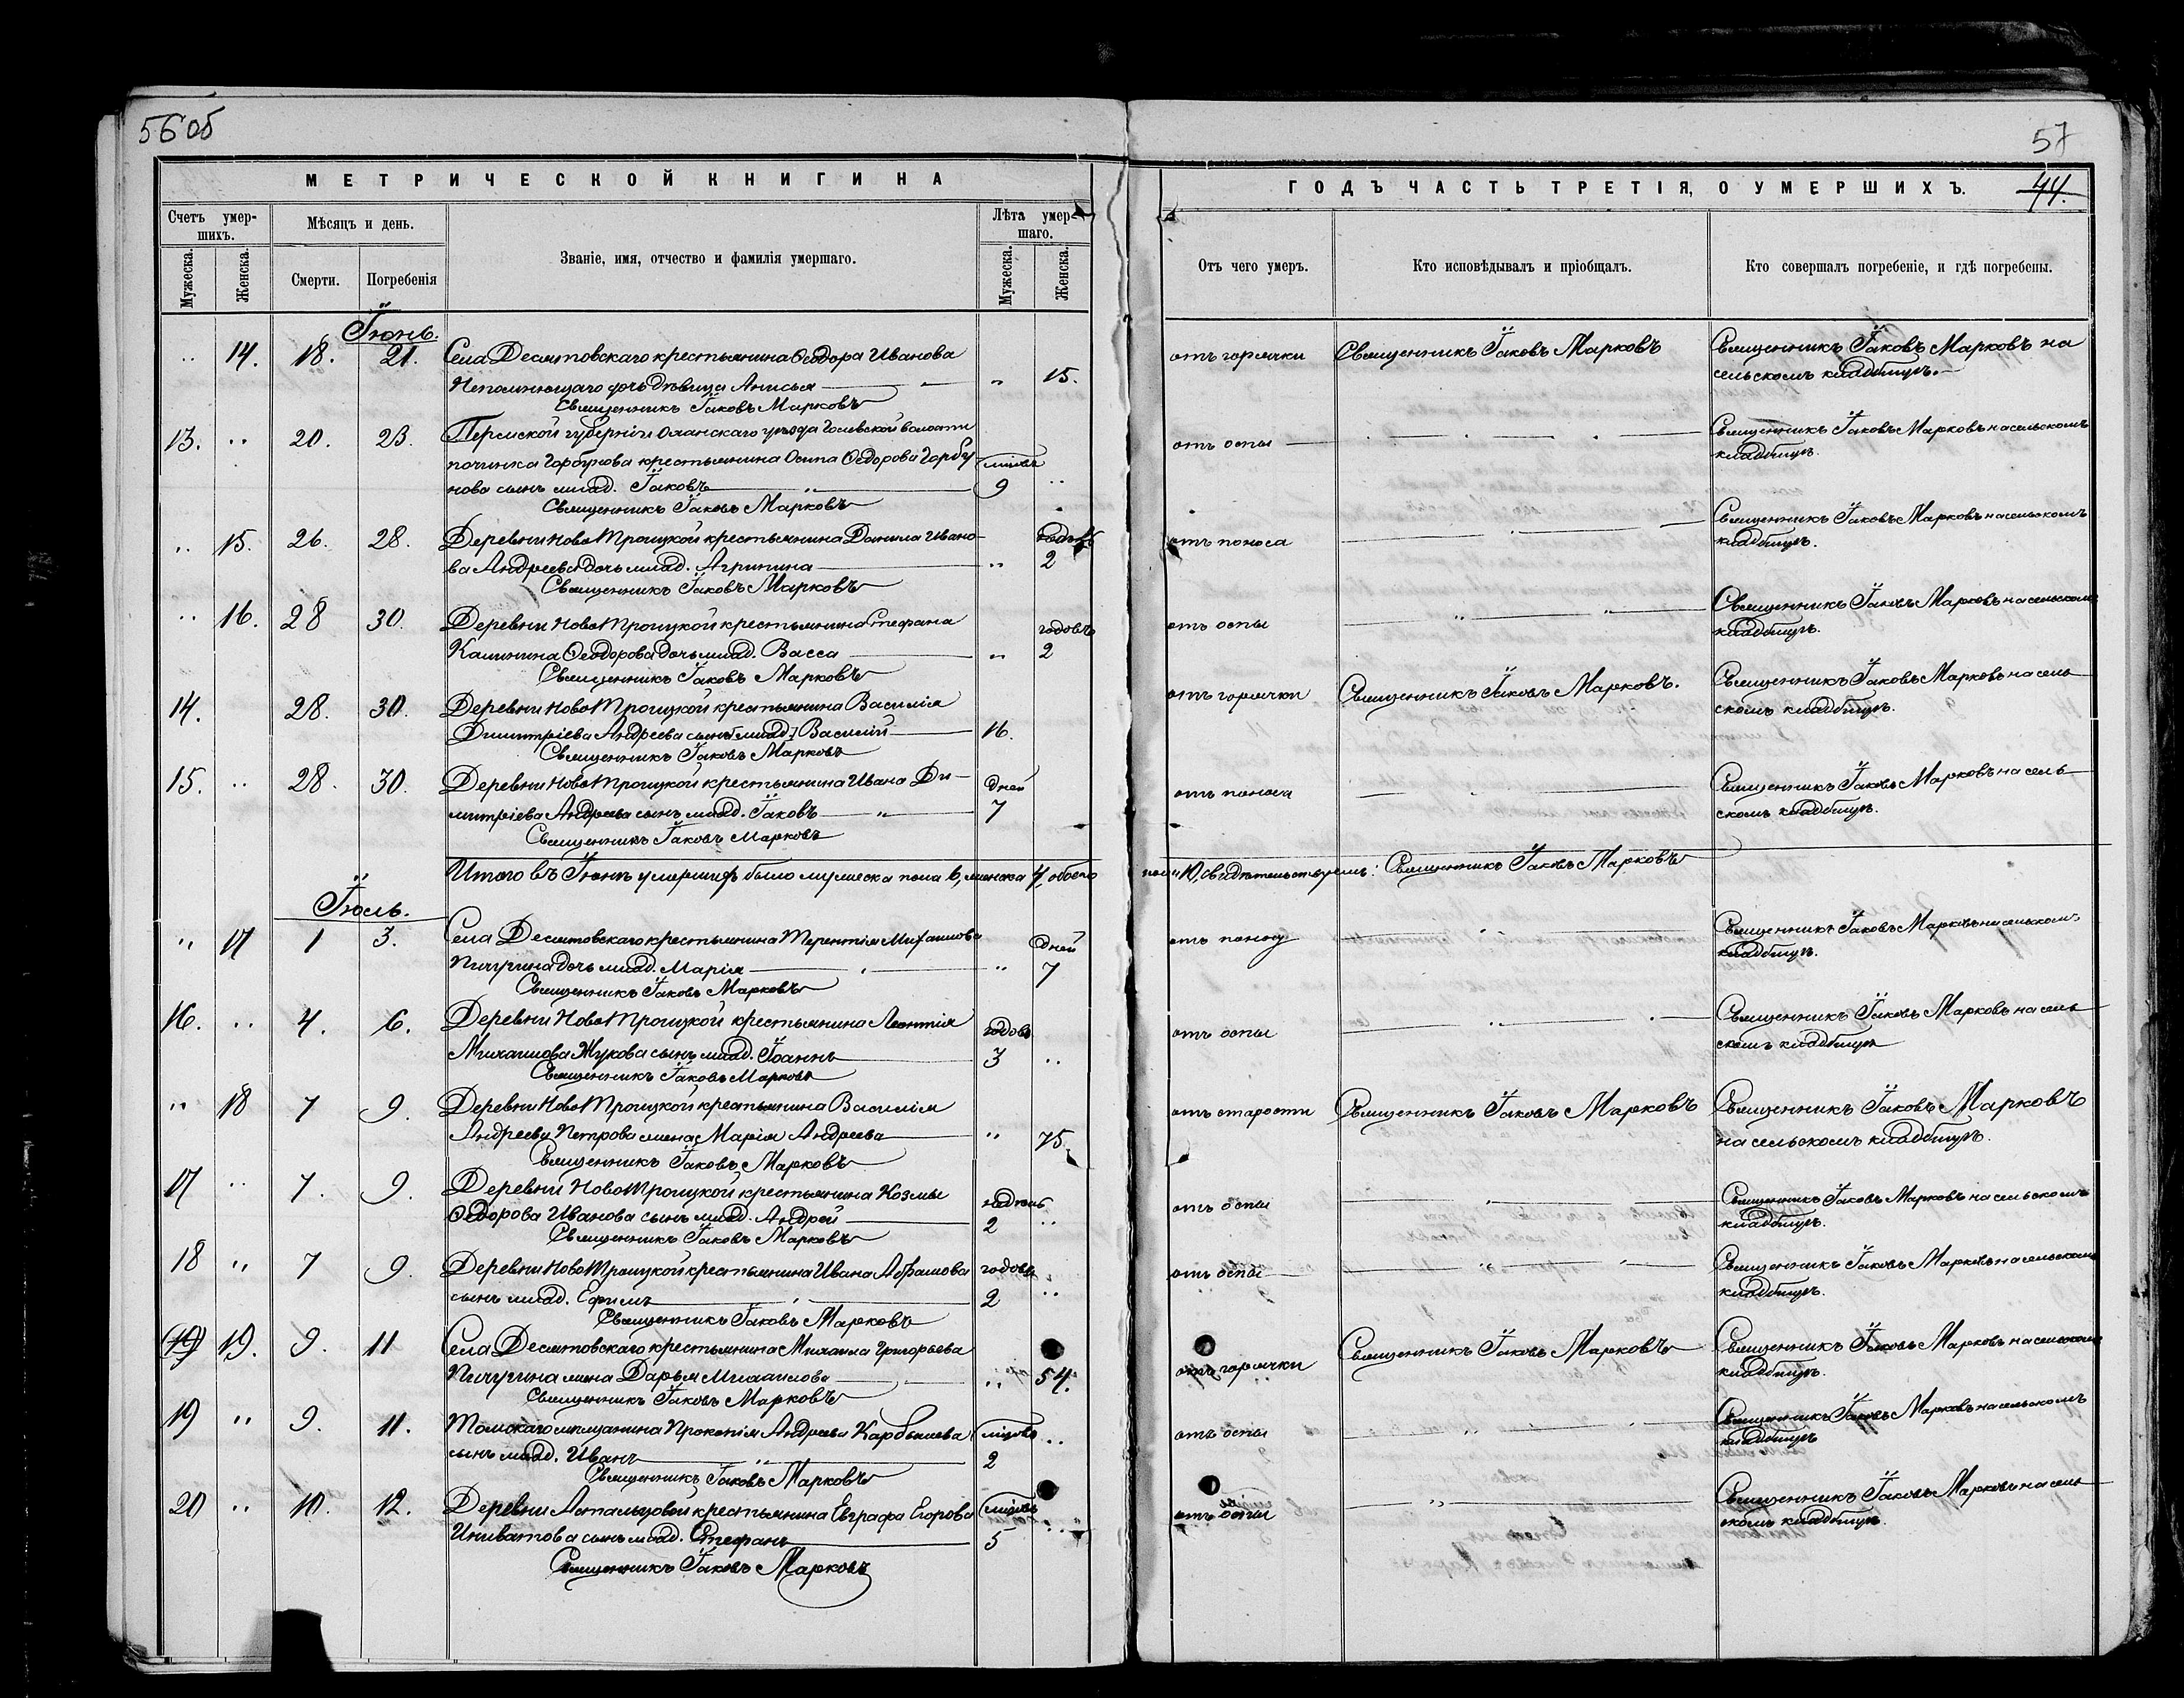 56об
57
МЕТРИЧЕСКОЙ КНИГИ НА
ГОДЪ ЧАСТЬ ТРЕТІЯ, О УМЕРШИХЪ. 44.
Счетъ умершихъ.
Мужеска.
Женска.
Мѣсяцъ и день.
Смерти.
Погребенія
Званіе, имя, отчество и фамилія умершаго.
Лѣта умершаго.
Мужеска.
Женска.
Отъ чего умеръ.
Кто исповѣдывалъ и пріобщалъ.
Кто совершалъ погребеніе, и гдѣ погребены.
Іюнь.
„ 14. 18. 21. Села Десятовскаго крестьянина Ѳеодора Иванова
Непомнющаго дочь дѣвица Анисья „ 15. отъ горячки Священникъ Іаковъ Марковъ Священникъ Іаковъ Марковъ на
сельскомъ кладбищѣ.
Священникъ Іаковъ Марковъ
13. „ 20. 23. Пермской губерніи Оханскаго уѣзда волости
починка Горбунова крестьянина Осипа Ѳедорова Горбу-
нова сынъ млад. Іаковъ „ мѣсяц. 9 „ отъ оспы Священникъ Іаковъ Марковъ на сельскомъ
кладбищѣ.
Священникъ Іаковъ Марковъ
„ 15. 26. 28. Деревни НовоТроицкой крестьянина Данила Ивано-
ва Андреева дочь млад. Агрипина „ годовъ 2 отъ поноса Священникъ Іаковъ Марковъ на сельскомъ
кладбищѣ.
Священникъ Іаковъ Марковъ
„ 16. 28 30. Деревни НовоТроицкой крестьянина Стефана
Калинина Ѳеодорова дочь млад. Васса „ годовъ 2 отъ оспы „ Священникъ Іаковъ Марковъ на сельскомъ
кладбищѣ.
Священникъ Іаковъ Марковъ
14. 28. 30. Деревни НовоТроицкой крестьянина Василія
Димитріева Андреева сынъ [млад.] Василій 16. отъ горячки Священникъ Іаковъ Марковъ. Священникъ Іаковъ Марковъ на сель
скомъ кладбищѣ.
Священникъ Іаковъ Марковъ
15. „ 28. 30. Деревни НовоТроицкой крестьянина Ивана Ди-
митріева Андреева сынъ млад. Іаковъ „ дней 7 отъ поноса Священникъ Іаковъ Марковъ на сель
скомъ кладбищѣ.
Священникъ Іаковъ Марковъ
Итого въ Іюнѣ умершихъ было мужеска пола 6, женска 4, обоего пола 10, свидѣтельствуемъ: Священникъ Іаковъ Марковъ
Іюль.
„ 17 1 3. Села Десятовскаго крестьянина Терентія Михаилова
Пичугина дочь млад. Марія „ дней 7 отъ поносу „ Священникъ Іаковъ Марковъ на сельском
кладбищѣ.
Священникъ Іаковъ Марковъ
16. „ 4. 6. Деревни НовоТроицкой крестьянина Леонтія
Михаилова Жукова сынъ млад. Іоаннъ годовъ 3 „ отъ оспы „ Священникъ Іаковъ Марковъ на сель
скомъ кладбищѣ
Священникъ Іаковъ Марковъ
„ 18 7 9. Деревни НовоТроицкой крестьянина Василія
Андреева Петрова жена Марія Андреева „ 75. отъ старости Священникъ Іаковъ Марковъ Священникъ Іаковъ Марковъ
на сельскомъ кладбищѣ.
Священникъ Іаковъ Марковъ
17 „ 7. 9. Деревни НовоТроицкой крестьянина Козмы
Ѳедорова Иванова сынъ млад. Андрей недѣль 2 „ отъ оспы „ Священникъ Іаковъ Марковъ на сельскомъ
кладбищѣ.
Священникъ Іаковъ Марковъ
18 „ 7 9. Деревни НовоТроицкой крестьянина Ивана Абрамова
сынъ млад. Ефимъ годовъ 2 „ отъ оспы „ Священникъ Іаковъ Марковъ на сельскомъ
кладбищѣ.
Священникъ Іаковъ Марковъ
(19) 19. 9. 11 Села Десятовскаго крестьянина Михаила Григорьева
Пичугина жена Дарья Михаилова „ 54. отъ горячки Священникъ Іаковъ Марковъ Священникъ Іаковъ Марковъ на сельскомъ
кладбищѣ.
Священникъ Іаковъ Марковъ
19 „ 9. 11. Томскаго мѣщанина Прокопія Андреева Карбышева
сынъ млад. Иванъ „ мѣсяцов 2 „ отъ оспы „ Священникъ Іаковъ Марковъ на сельскомъ
кладбищѣ
Священникъ Іаковъ Марковъ
20 „ 10. 12. Деревни Асташцовой крестьянина Евграфа Егорова
сынъ млад. Стефанъ мѣсяц. 5 „ отъ оспы „ Священникъ Іаковъ Марковъ на сель
скомъ кладбищѣ.
Священникъ Іаковъ Марковъ